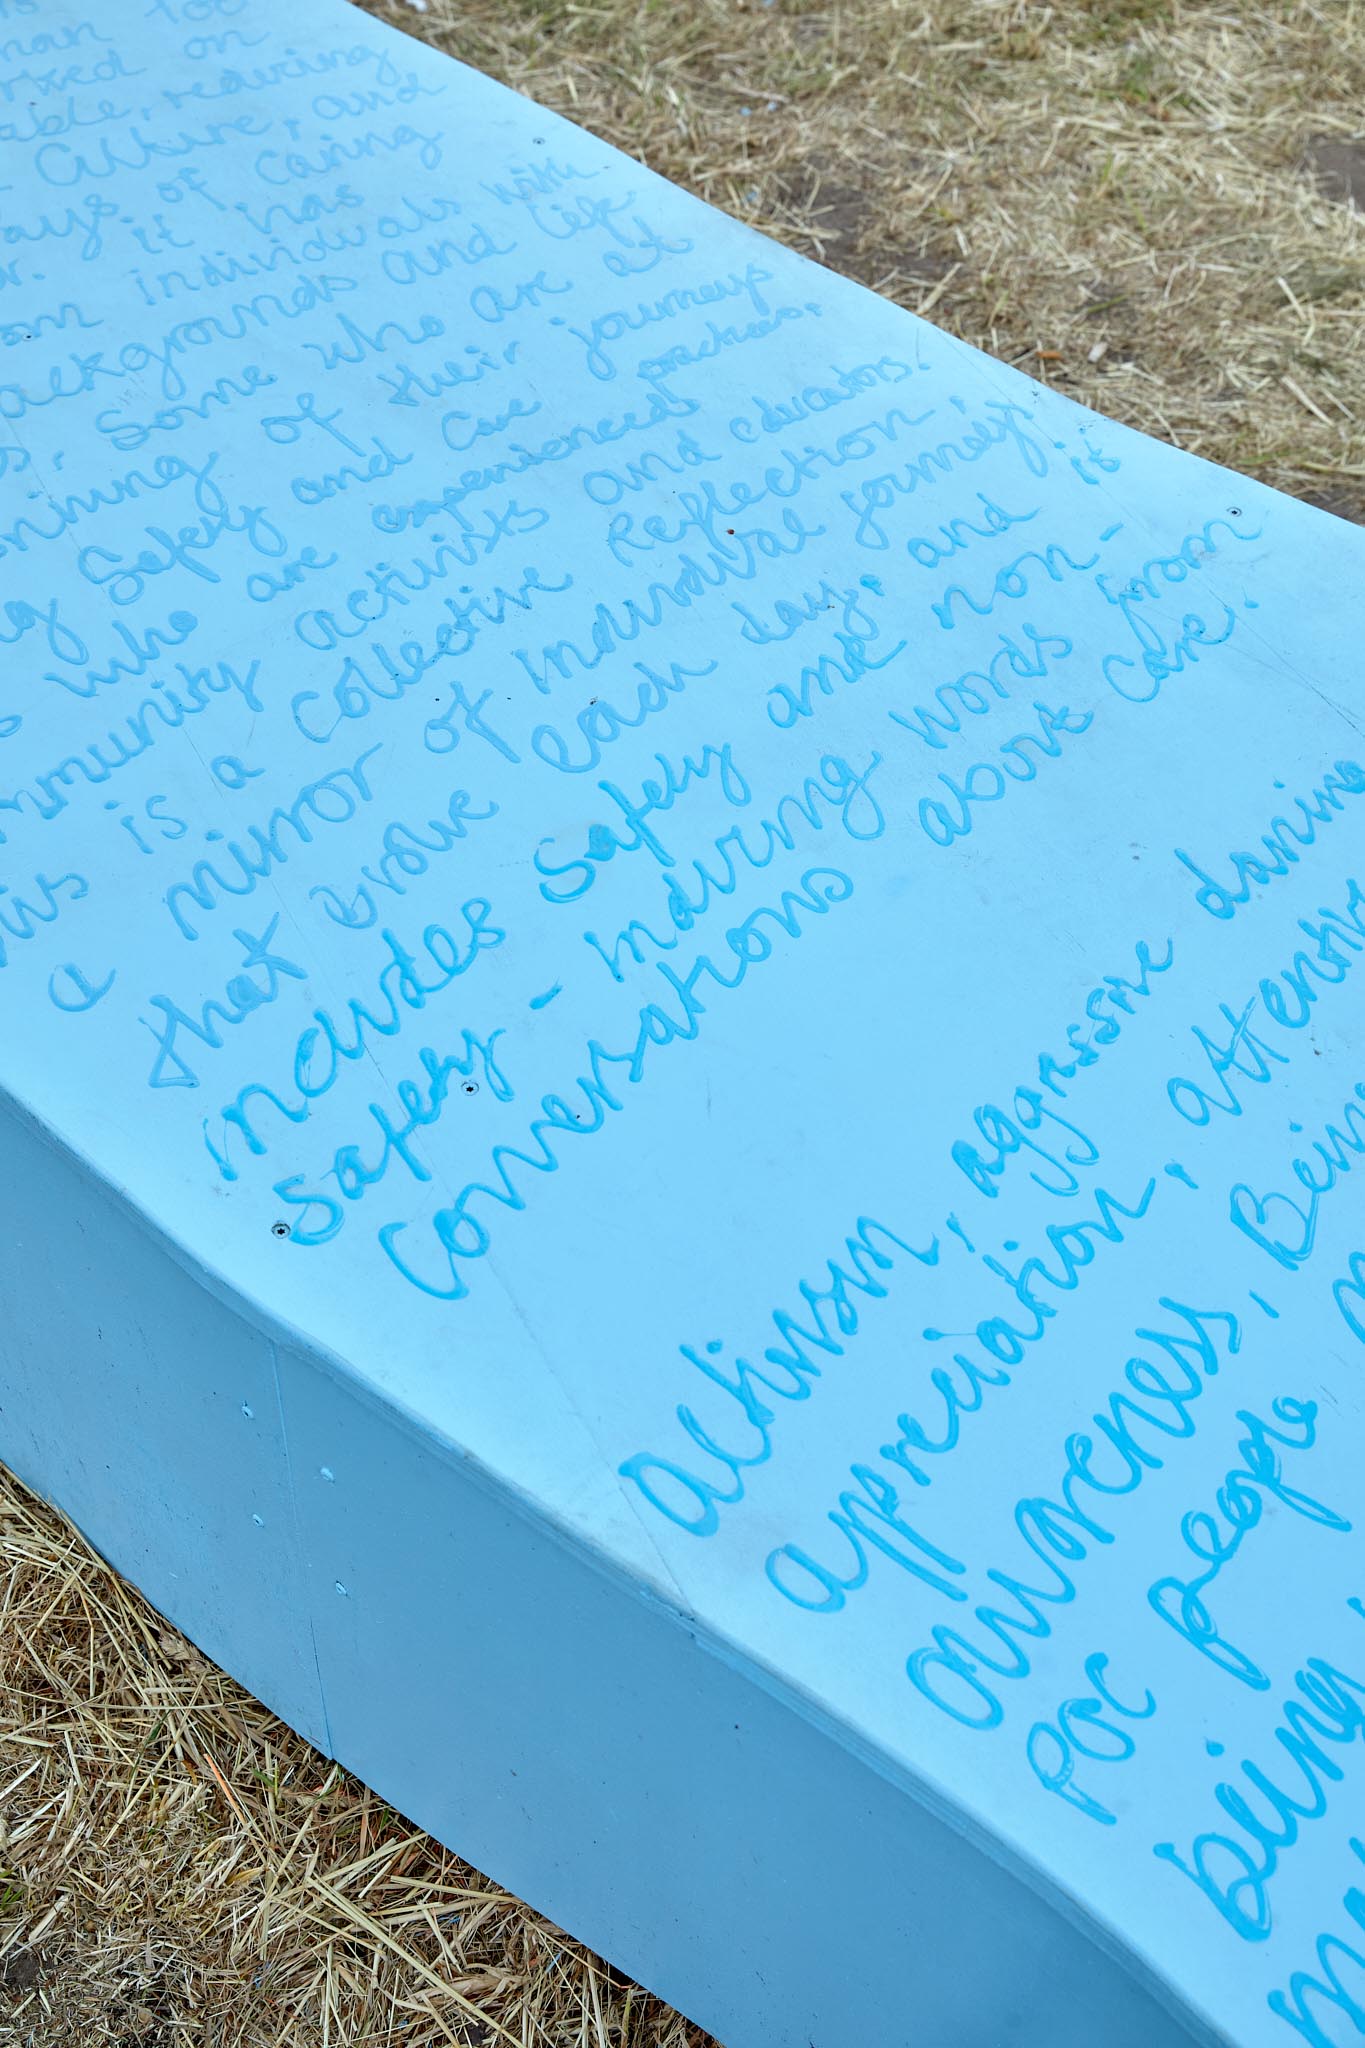 too
on
able, reducing
culture, and
ays of caring
it has
individuals with
backgrounds and life
some who are at
of their journeys
safety and care practices,
who are experienced
mmunity activists and educators.
is a collective Reflection
a mirror of individual journeys
that evolve each day, and it
includes safety and non-
safety - inducing words from
conversations about care.
activism, aggressive
appreciation, attentive
awareness, Being
POC people
being